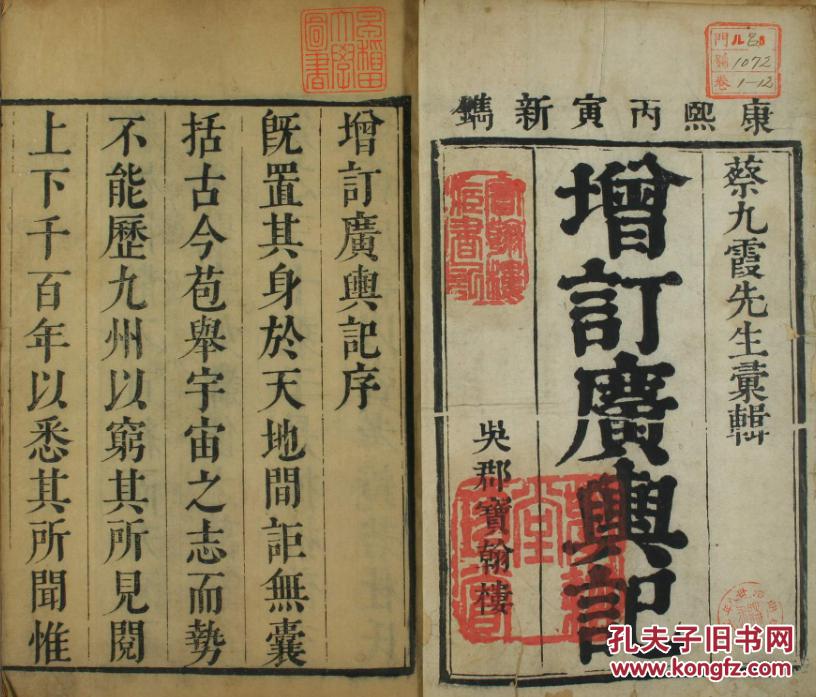 康熙丙寅新鐫
蔡九霞先生彙輯
增訂廣輿記
吳郡寶翰樓
門ル 
號 1072
卷 1-12
增訂廣輿記序
旣置其身於天地間詎無囊
括古今苞舉宇宙之志而勢
不能歷九州以窮其所見閱
上下千百年以悉其所聞惟
圖書
孔夫子旧书网
www.kongfz.com